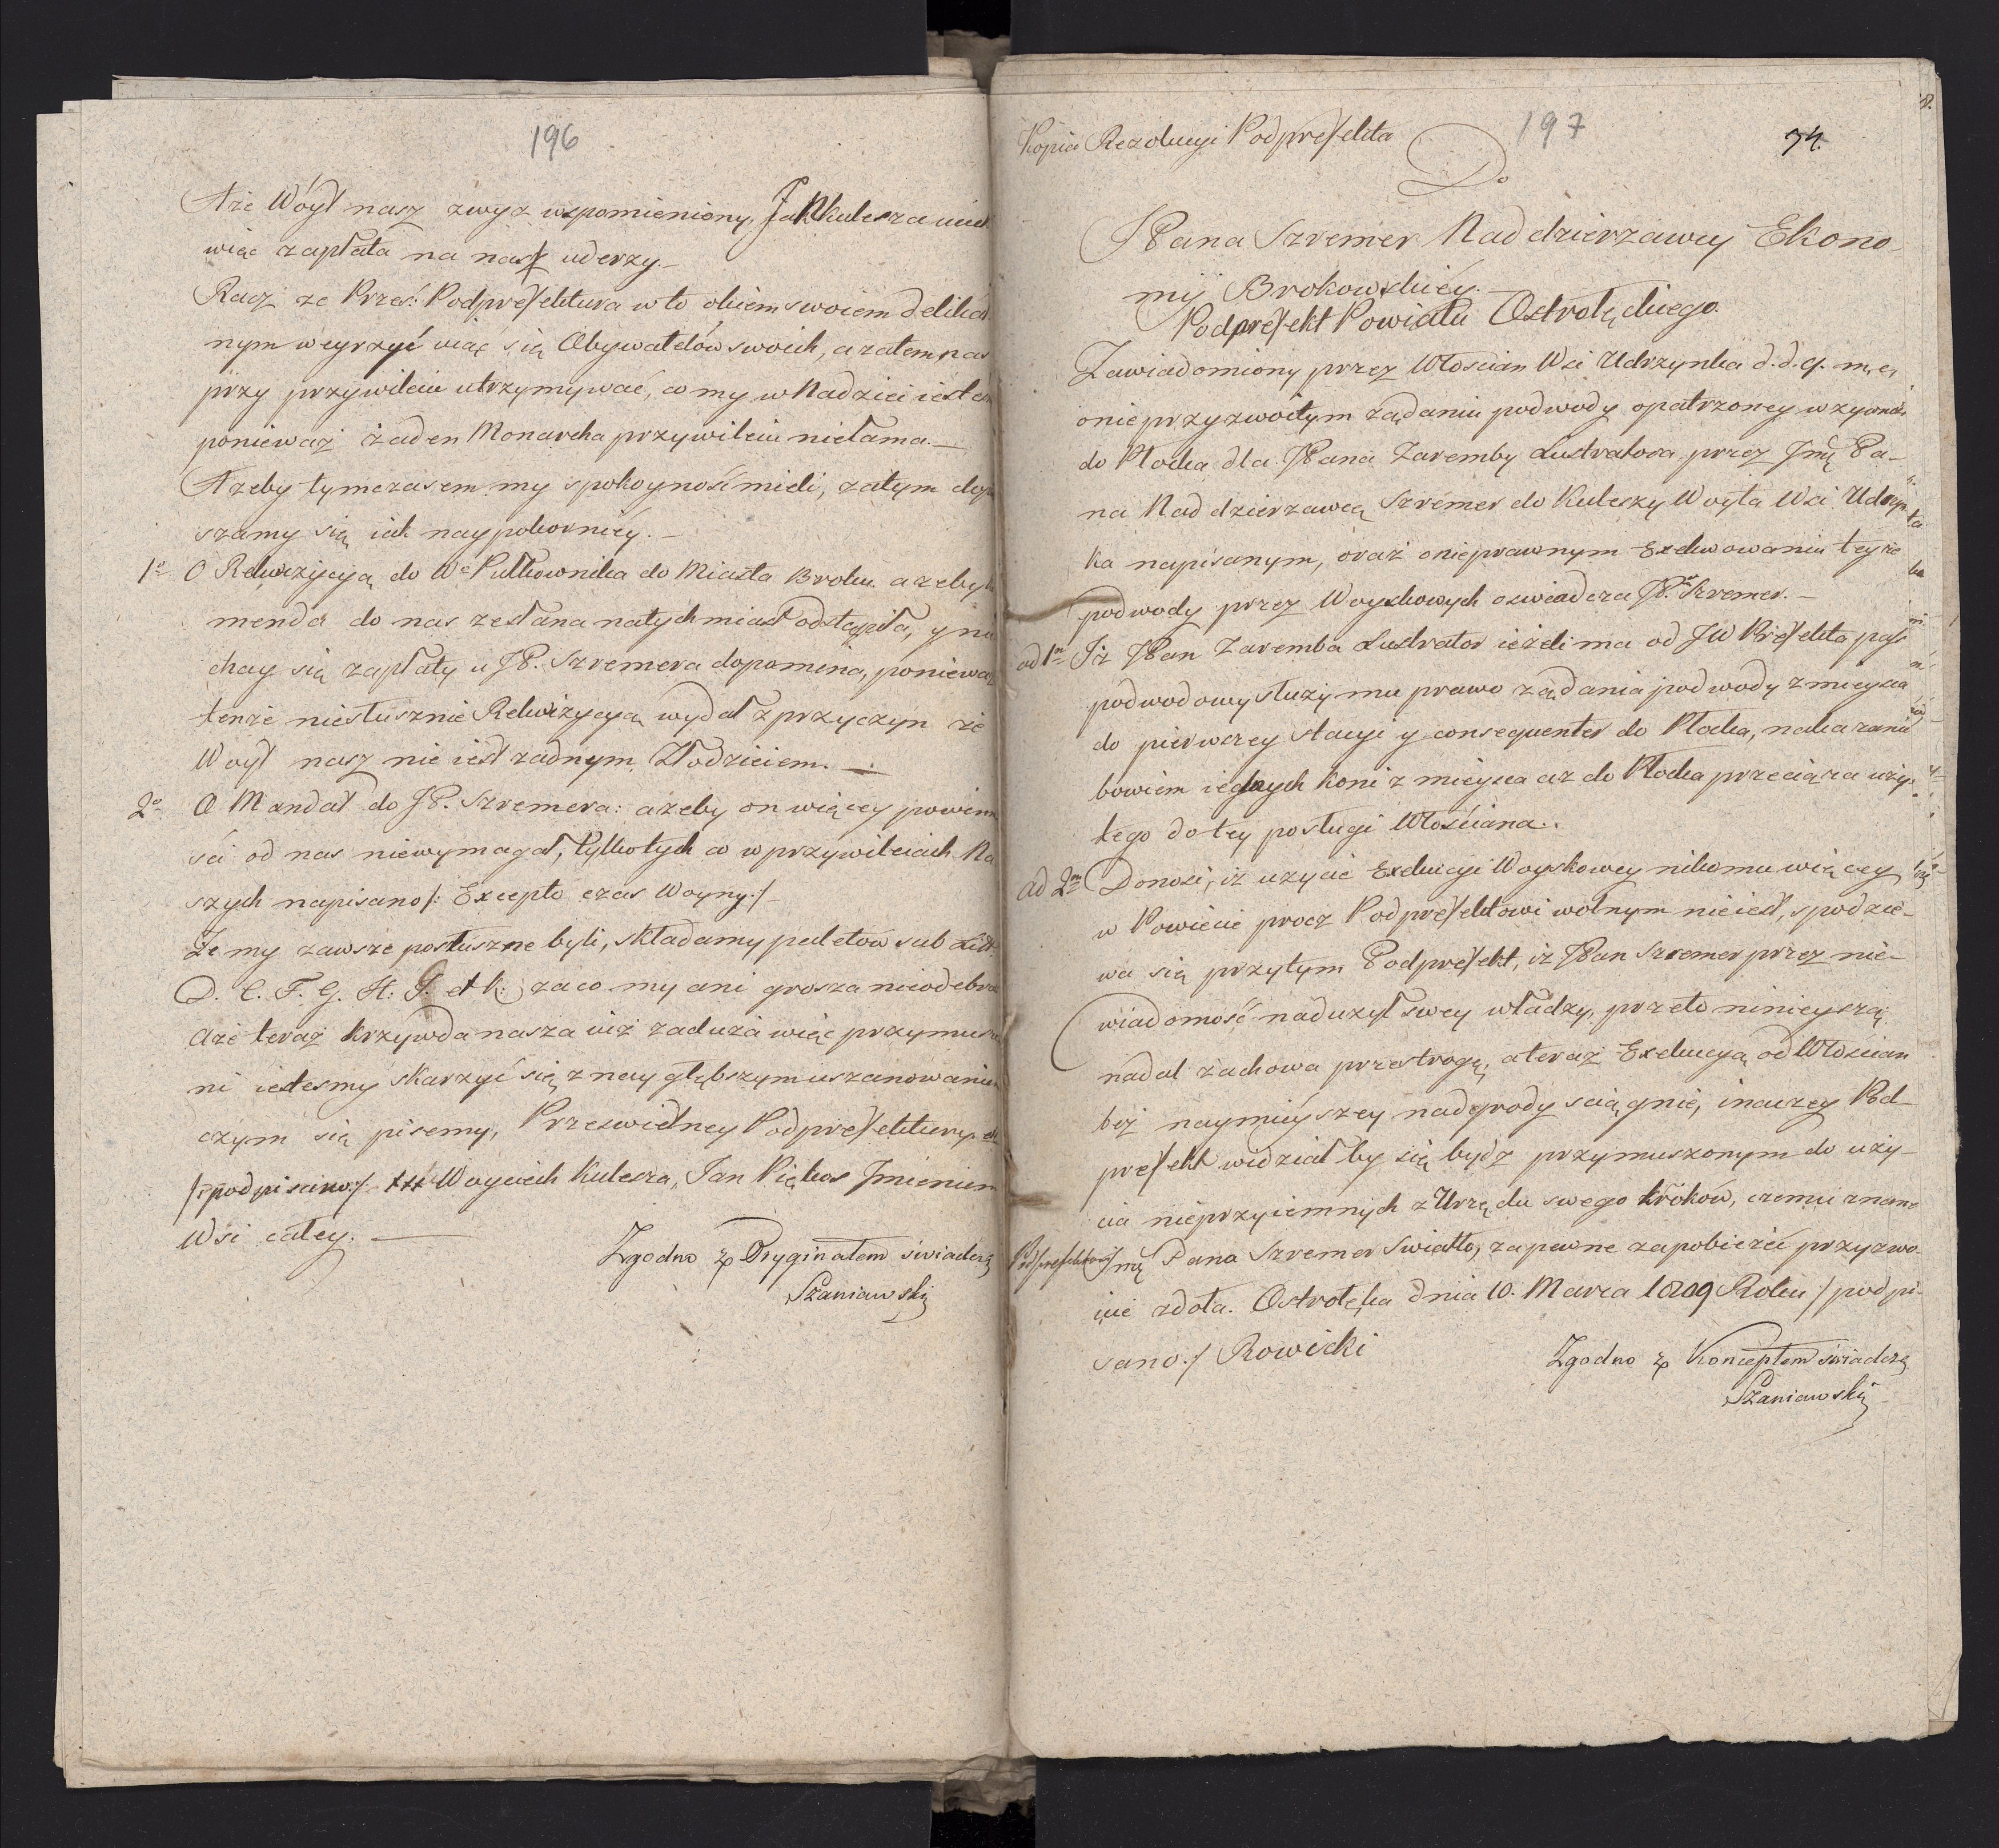 196
Aże Wóyt nasz zwyż wspomieniony, Jak Kulesza
więc zapłata na nas uderzy.
Racz ze Prześ: Podprefektura w to okiem swoiem delikat
nym weyrzyć uiąć się Obywatelów swoich, a zatem nas
przy przywileiu utrzymywać, co my w Nadziei iest
ponieważ żaden Monarcha przywileiu niełama.
Ażeby tymczasem my spokoyność mieli, zatym
szamy się iak naypokorniey.
1o O Rekwizycyą do We Pułkownika do Miasta Broku ażeby
menda do nas zesłana natychmiast odstąpiła, y nie
chay się zapłaty u JP. Szremera dopomina, ponieważ
tenże niesłusznie Rekwizycyą wydał z przyczyn że
Woyt nasz nie iest żadnym Złodzieiem.
2o O Mandat do JP. Szremera: ażeby on więcey powinn
ści od nas niewymagał, tylko tych co w przywileiach Na
szych napisano /: Excepto czas Woyny:/
Że my zawsze posłuszne byli, składamy paletów sub Litt.
D. E. F. G. H. J. et K: zaco my ani grosza nieodebra
Aże teraz krzywda nasza iuż zaduża więc przymusze
ni iestesmy skarzyć się z nay głębszym uszanowaniem
czym się piszemy, Prześwietney Podprefektury
/:podpisano:/ +++ Woyciech Kulesza, Jan Piętkos Jmieniem
Wsi całey.
Zgodno z Oryginałem świadczę
Szaniawski
Kopia Rezolucyi Podprefekta
197
74.
Do
JPana Szremer Naddzierżawcy Ekono
mij Brokowskiéy.
Podprefekt Powiatu Ostrołęckiego.
Zawiadomiony przez Włoscian Wsi Udrzynka d. d. 9. m. c.
o nieprzyzwoitym żądaniu podwody opatrzoney w żywność
do Płocka dla JPana Zaremby Lustratora przez Jmć Pa-
na Naddzierżawcę Szremer do Kuleszy Woyta Wsi Udrzyn
ka napisanym, oraz o nieprawnym Exekwowaniu teyże
podwody przez Woyskowych oswiadcza JP. Szremer.
ad 1m Iż JPan Zaremba Lustrator ieżeli ma od JW Prefekta pasz
podwodowy służy mu prawo żądania podwody z mieysca
do pierwszey stacyi y consequenter do Płocka, nakazanie
bowiem iednych koni z mieysca aż do Płocka przeciąża uży
tego do tey posługi Włościana.
ad 2m Donosi, iż użycie Exekucyi Woyskowey nikomu więcey
w Powiecie procz Podprefektowi wolnym nieiest, spodzie-
wa się przytym Podprefekt, iż JPan Szremer przez nie-
wiadomość nadużył swey władzy, przeto ninieyszą
nadal zachowa przestrogę, a teraz Exekucyą od Włoscian
bez naymnieyszey nadgrody sciągnie, inaczey Pod-
prefekt widziałby się bydź przymuszonym do uży-
cia nieprzyiemnych z Urzędu swego kroków, czemu znane
Podprefektowi Jmć Pana Szremer Swiatło, zapewne zapobieżeć przyzwo-
icie zdoła. Ostrołęka dnia 10. Marca 1809 Roku /podpi-
sano:/ Rowicki
Zgodno z Konceptem świadczę
Szaniawski